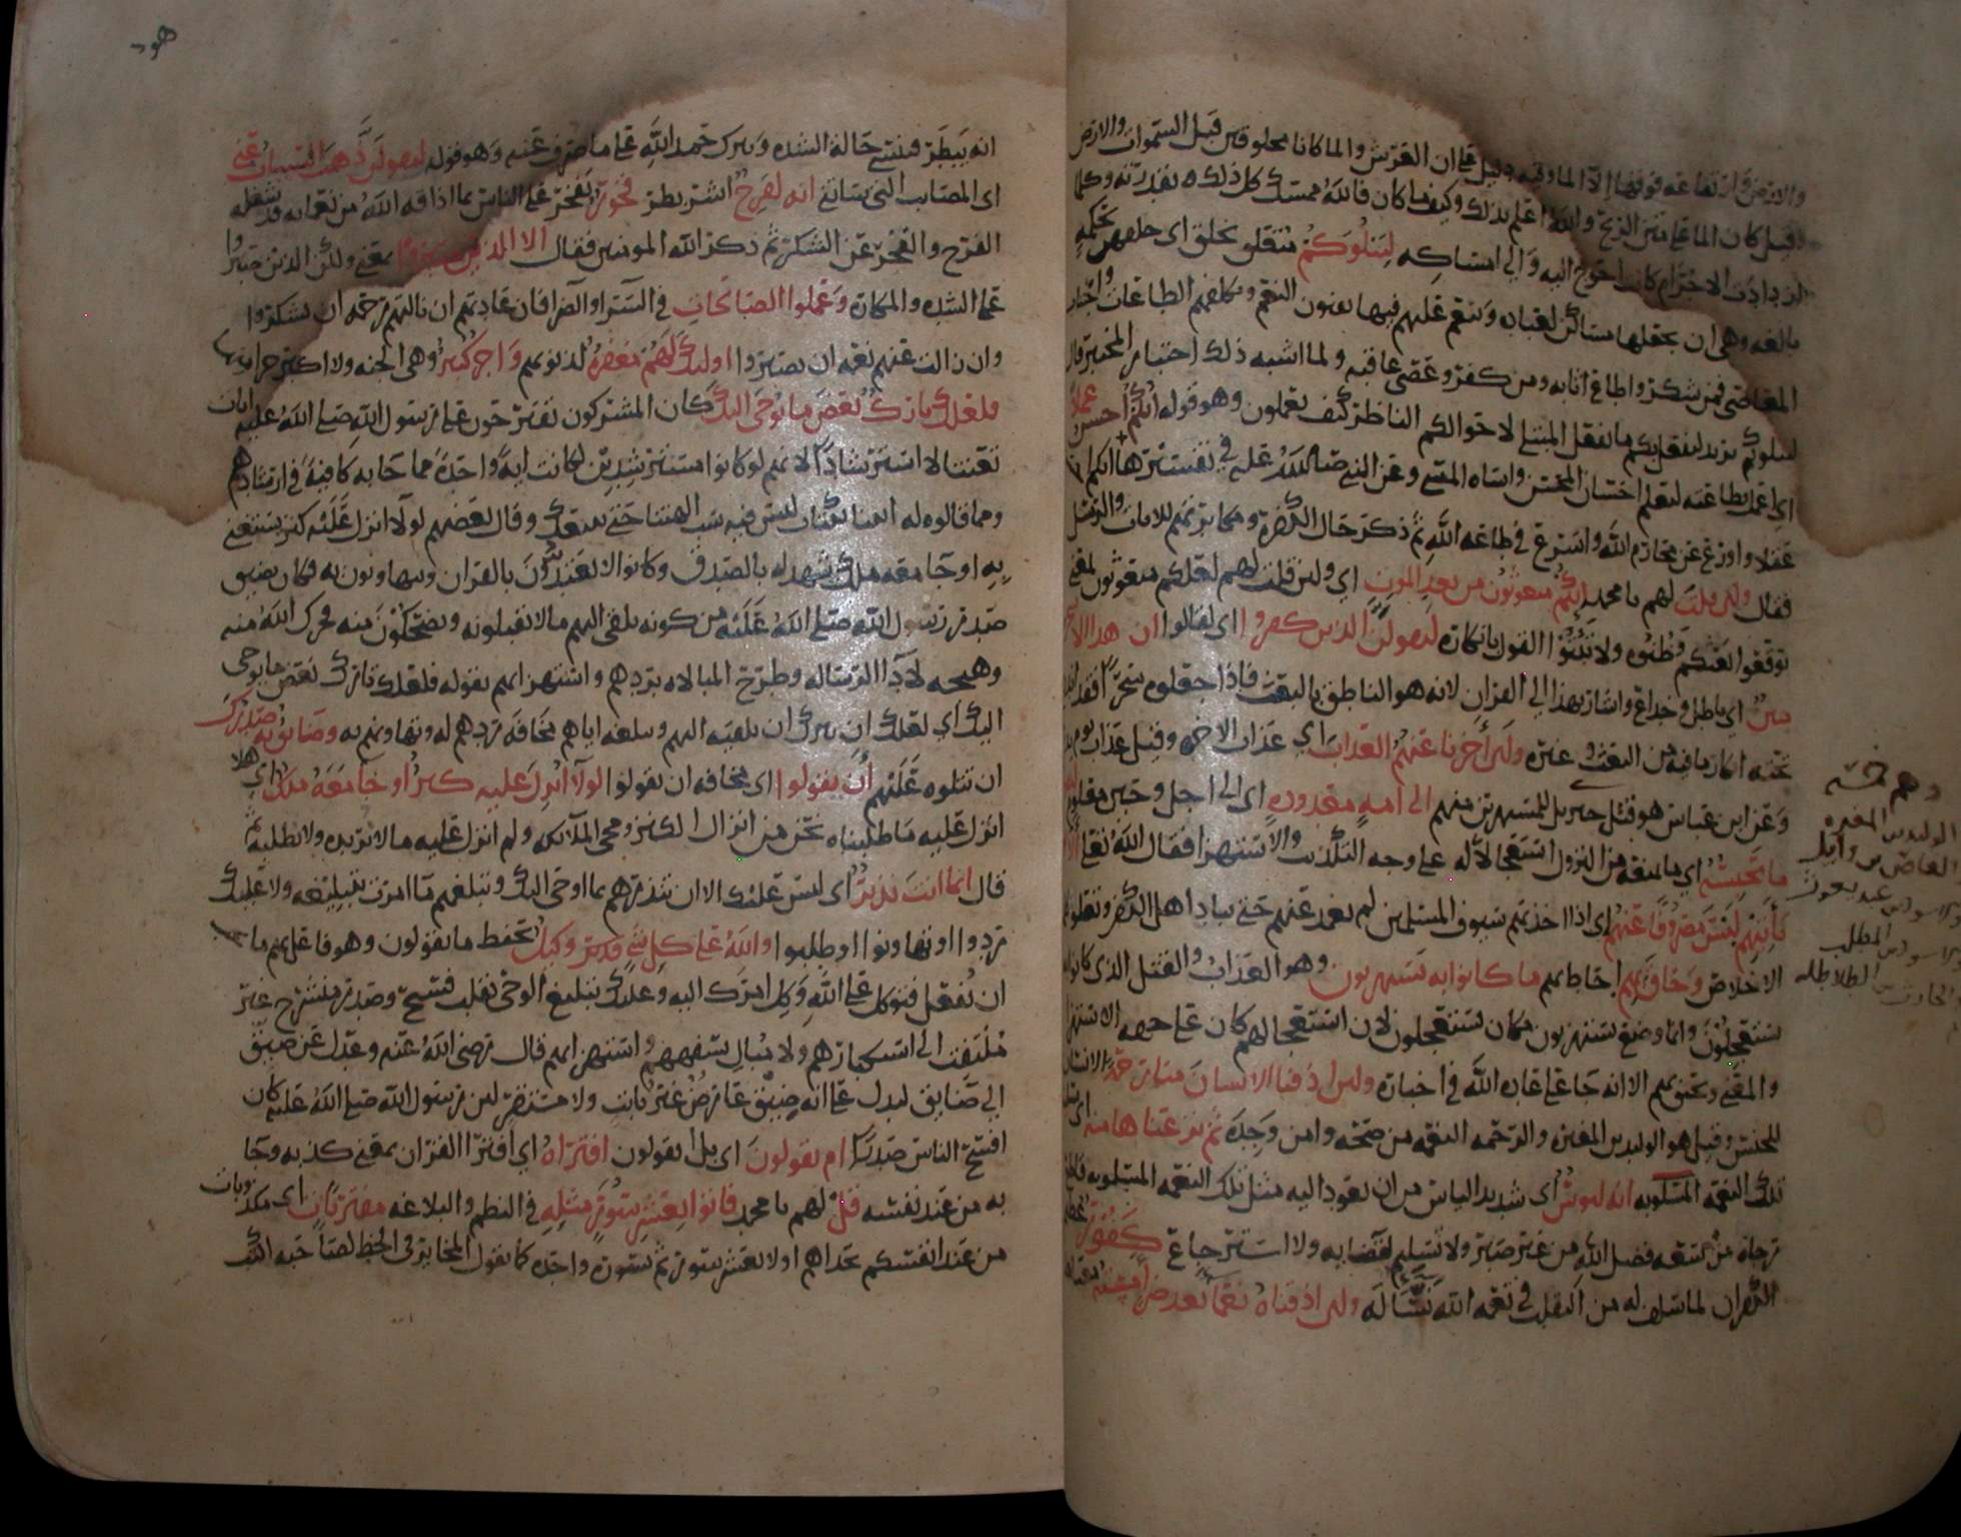 والارض وارتفاعه فوقها الا الما وفيه دليل على ان العرش والما كانا مخلوقين قبل السموات والارض
وقيل كان الما على متن الريح والله اعلم بذلك وكيف ما كان فالله ممسك كل ذلك بقدرته وكلما
ازدادت الاجرام كانت احوج اليه والى امساكه ليبلوكم متعلق بخلق اى خلقهن بحكمه
بالغه وهى ان يجعلها مساكن لعباده وينعم عليهم فيها بفنون النعم ويكلفهم الطاعات واجتناب
المعاصى فمن شكر واطاع اثابه ومن كفر وعصى عاقبه ولما اشبه ذلك اختبار المختبر قال
ليبلوكم يريد ليفعل بكم ما يفعل المبتلى لاحوالكم الناظر كيف يعملون وهو قوله ايكم احسن عملا
اى اعمل بطاعته ليعلم احسان المحسن واساه المسى وعن النبى صلى الله عليه فى تفسيرها ايكم احسن
عقلا واورع عن محارم الله واسرع فى طاعه الله ثم ذكر حال الكفره ومكابرتهم للايات والرسل
فقال ولين قلت لهم يا محمد انكم مبعوثون من بعد الموت اي ولين قلت لهم لعلكم مبعوثون بمعنى
توقعوا بعثكم وظنوه ولا تبتوا القول بانكاره ليقولن الذين كفروا اى لقالوا ان هذا الا سحر
مبين اى باطل وخداع واشار بهذا الى القران لانه هو الناطق بالبعث فاذا جعلوه سحرا فقد اندرج
تحته انكار ما فيه من البعث وغيره ولين أخرنا عنهم العذاب اي عذاب الاخره وقيل عذاب يوم بدر
وعن ابن عباس هو قتل جبريل للمستهزين منهم الى امه معدوده اى الى اجل وحين معلوم ليقولن
ما يحبسه اي ما يمنعه من النزول استعجالا له على وجه التكذيب والاستهزا فقال الله تعالى الا يوم
يأتيهم ليس مصروفا عنهم اى اذا اخذتهم سيوف المسلمين لم تغمد عنهم حتى يباد اهل الكفر وتعلو كلمه
الاخلاص وحاق بهم احاط بهم ما كانوا به يستهزون وهو العذاب والقتل الذى كانوا به
يستعجلون وانما وضع يستهزون مكان يستعجلون لان استعجالهم كان على جهه الاستهزا
والمعنى ويحيق بهم الا انه جا على عاده الله فى اخباره ولين اذقنا الانسان منا رحمة الانسان
للجنس وقيل هو الوليد بن المغيره والرحمه النعمه من صحه وامن وجده ثم نزعناها منه اى سلبنا
تلك النعمه المسلوبه انه ليوس اى شديد الياس من ان تعود اليه مثل تلك النعمه المسلوبه قاطع
رجاه من سعه فضل الله من غير صبر ولا تسليم لقضايه ولا استرجاع كفور عظيم
الكفران لما سلف له من التقلب فى نعمه الله نساله ولين اذقناه نعما بعد ضرا مسته
وهم خمسه
الوليد بن المغيره
والعاص بن وايل
والاسود بن عبد يغوث
والاسود بن المطلب
والحارث بن الطلاطله
هود
انه يبطر فينسى حالة الشده ويترك حمد الله على ما صرف عنه وهو قوله ليقولن ذهب السيات عنى
اى المصايب التى ساتنى انه لفرح اشر بطر فخور يفخر على الناس بما اذاقه الله من نعمايه قد شغله
الفرح والفخر عن الشكر ثم ذكر الله المومنين فقال الا الذين صبروا بمعنى ولكن الذين صبروا
على الشده والمكاره وعملوا الصالحات فى السرا والضرا فان عادتهم ان نالتهم رحمه ان يشكروا
وان زالت عنهم نعمه ان يصبروا اوليك لهم مغفرة لذنوبهم واجر كبير وهى الجنه ولا اكثر جزا منها
فلعلك تارك بعض ما يوحى اليك كان المشركون يقترحون على رسول الله صلى الله عليه ايات
تعنتا لا استرشادا لانهم لو كانوا مسترشدين لكانت اية واحدة مما جا به كافية فى ارشادهم
ومما قالوه له ايتنا بكتاب ليس فيه سب الهتنا حتى نتبعك وقال بعضهم لولا انزل عليه كنز يستغنى
به او جا معه ملك يشهد له بالصدق وكانوا لا يعتدون بالقران ويتهاونون به فكان يضيق
صدر رسول الله صلى الله عليه من كونه يلقى اليهم ما لا يقبلونه ويضحكون منه فحرك الله منه
وهيجه لأدا الرساله وطرح المبالاه بردهم واستهزايهم بقوله فلعلك تارك بعض ما يوحى
اليك اي لعلك ان تترك ان تلقيه اليهم وتبلغه اياهم مخافة ردهم له وتهاونهم به وضايق به صدرك
ان تتلوه عليهم أن يقولوا اى مخافه ان يقولوا لولا انزل عليه كنز أو جا معه ملك اي هلا
انزل عليه ما طلبناه نحن من انزال الكنز ومجى الملايكه ولم انزل عليه ما لا نريده ولا نطلبه ثم
قال انما انت نذير اى ليس عليك الا ان تنذرهم بما اوحى اليك وتبلغهم ما امرت بتبليغه ولا عليك
ردوا او تهاونوا او طلبوا والله على كل شي قدير وكيل يحفظ ما يقولون وهو فاعل بهم ما يجب
ان يفعل فتوكل على الله وكل امرك اليه وعليك بتبليغ الوحى بقلب فسيح وصدر منشرح غير
ملتفت الى استكبارهم ولا مبال بسفههم واستهزايهم قال رضى الله عنه وعدل عن ضيق
الى ضايق ليدل على انه ضيق عارض غير ثابت ولا مستقر لين رسول الله صلى الله عليه كان
افسح الناس صدرا ام يقولون اى بل ايقولون افتراه اي افترا القران بمعنى كذبه وجا
به من عند نفسه قل لهم يا محمد فاتوا بعشر سور مثله فى النظم والبلاغه مفتريات اى مكذوبات
من عند انفسكم تحداهم اولا بعشر سور ثم بسورة واحده كما يقول المخاير فى الخط لصاحبه اكتب